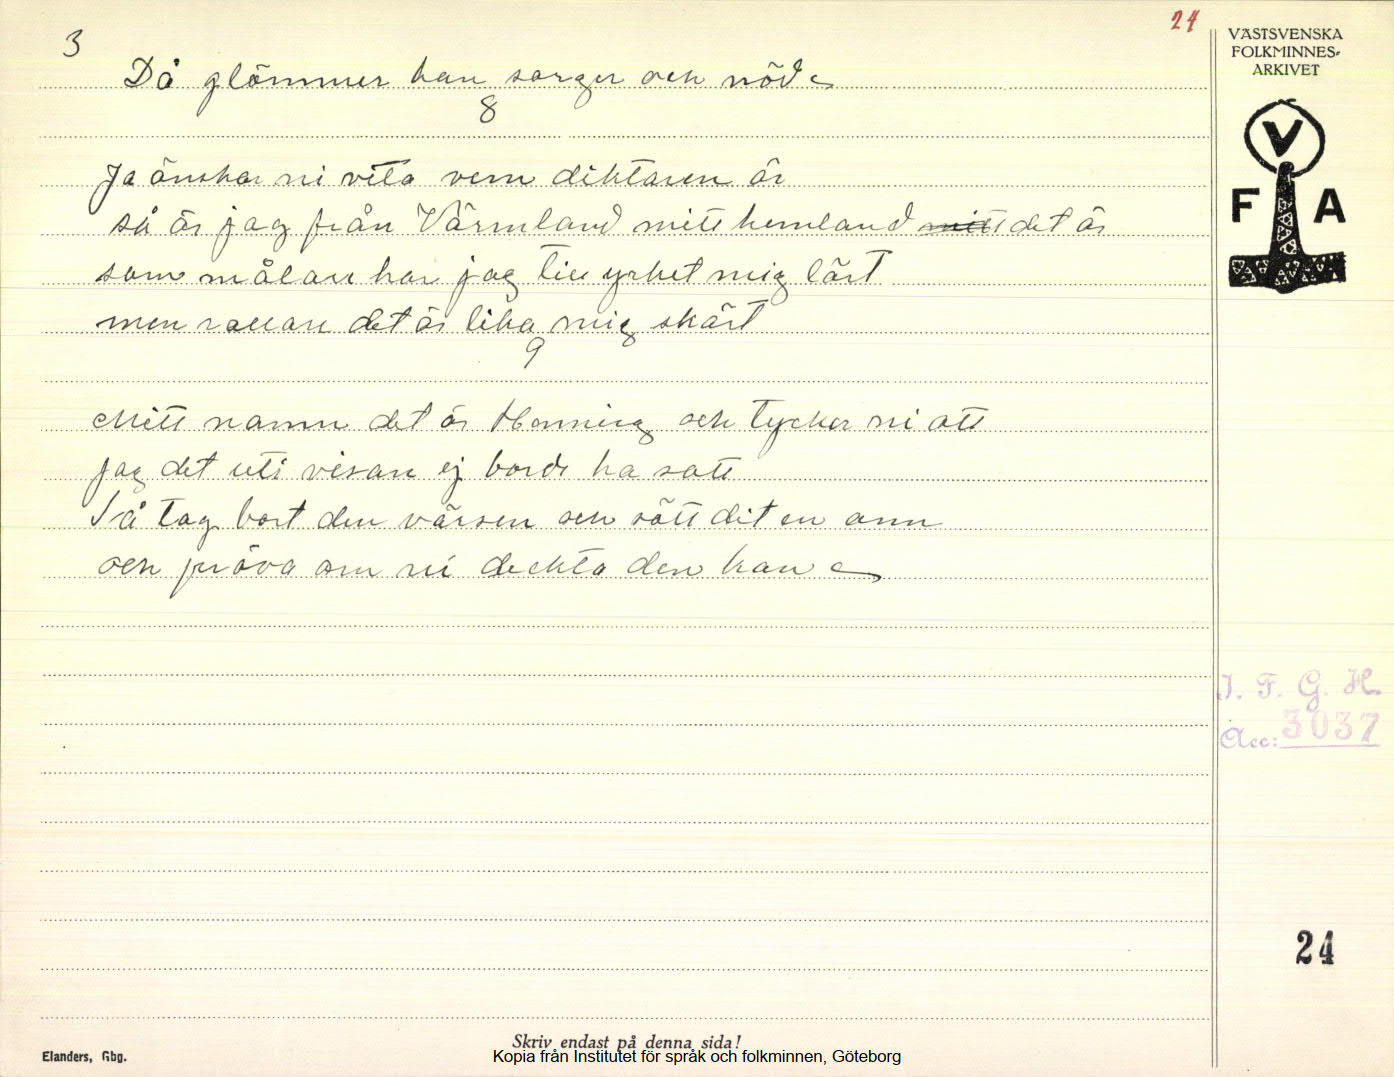 3
24
Då glömmer han sorger och nöd
8
Ja önskar ni veta vem diktaren är
så är jag från Värmland mitt hemland mitt det är
som målare har jag till yrket mig lärt
men rallare det är lika mig skärt
9
Mitt namn det är Henning och tycker ni att
jag det uti visan ej borde ha satt
Så tag bort den värsen och sätt dit en ann
och pröva om ni deckta den kan
VÄSTSVENSKA
FOLKMINNES-
ARKIVET
V
F A
I. F. G. H.
Acc: 3037
24
Skriv endast på denna sida!
Elanders, Gbg.
Kopia från Institutet för språk och folkminnen, Göteborg